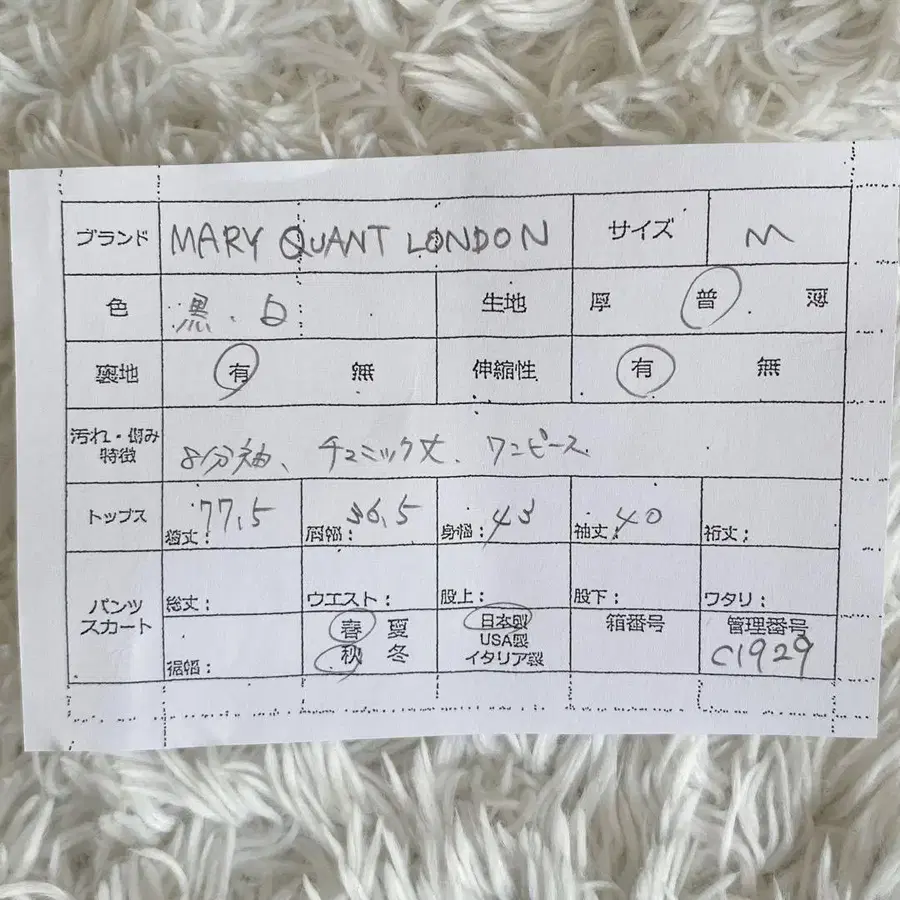 ブランド MARY QUANT LONDON サイズ M
色 黒、白 生地 厚 普 薄
裏地 有 無 伸縮性 有 無
汚れ・傷み
特徴 8分袖、チュニック丈、ワンピース
トップス 着丈: 77,5 肩幅: 36,5 身幅: 43 袖丈: 40 裄丈:
パンツ
スカート 総丈: ウエスト: 股上: 股下: ワタリ:
裾幅: 春 夏 日本製 箱番号 管理番号
秋 冬 USA製 C1929
イタリア製